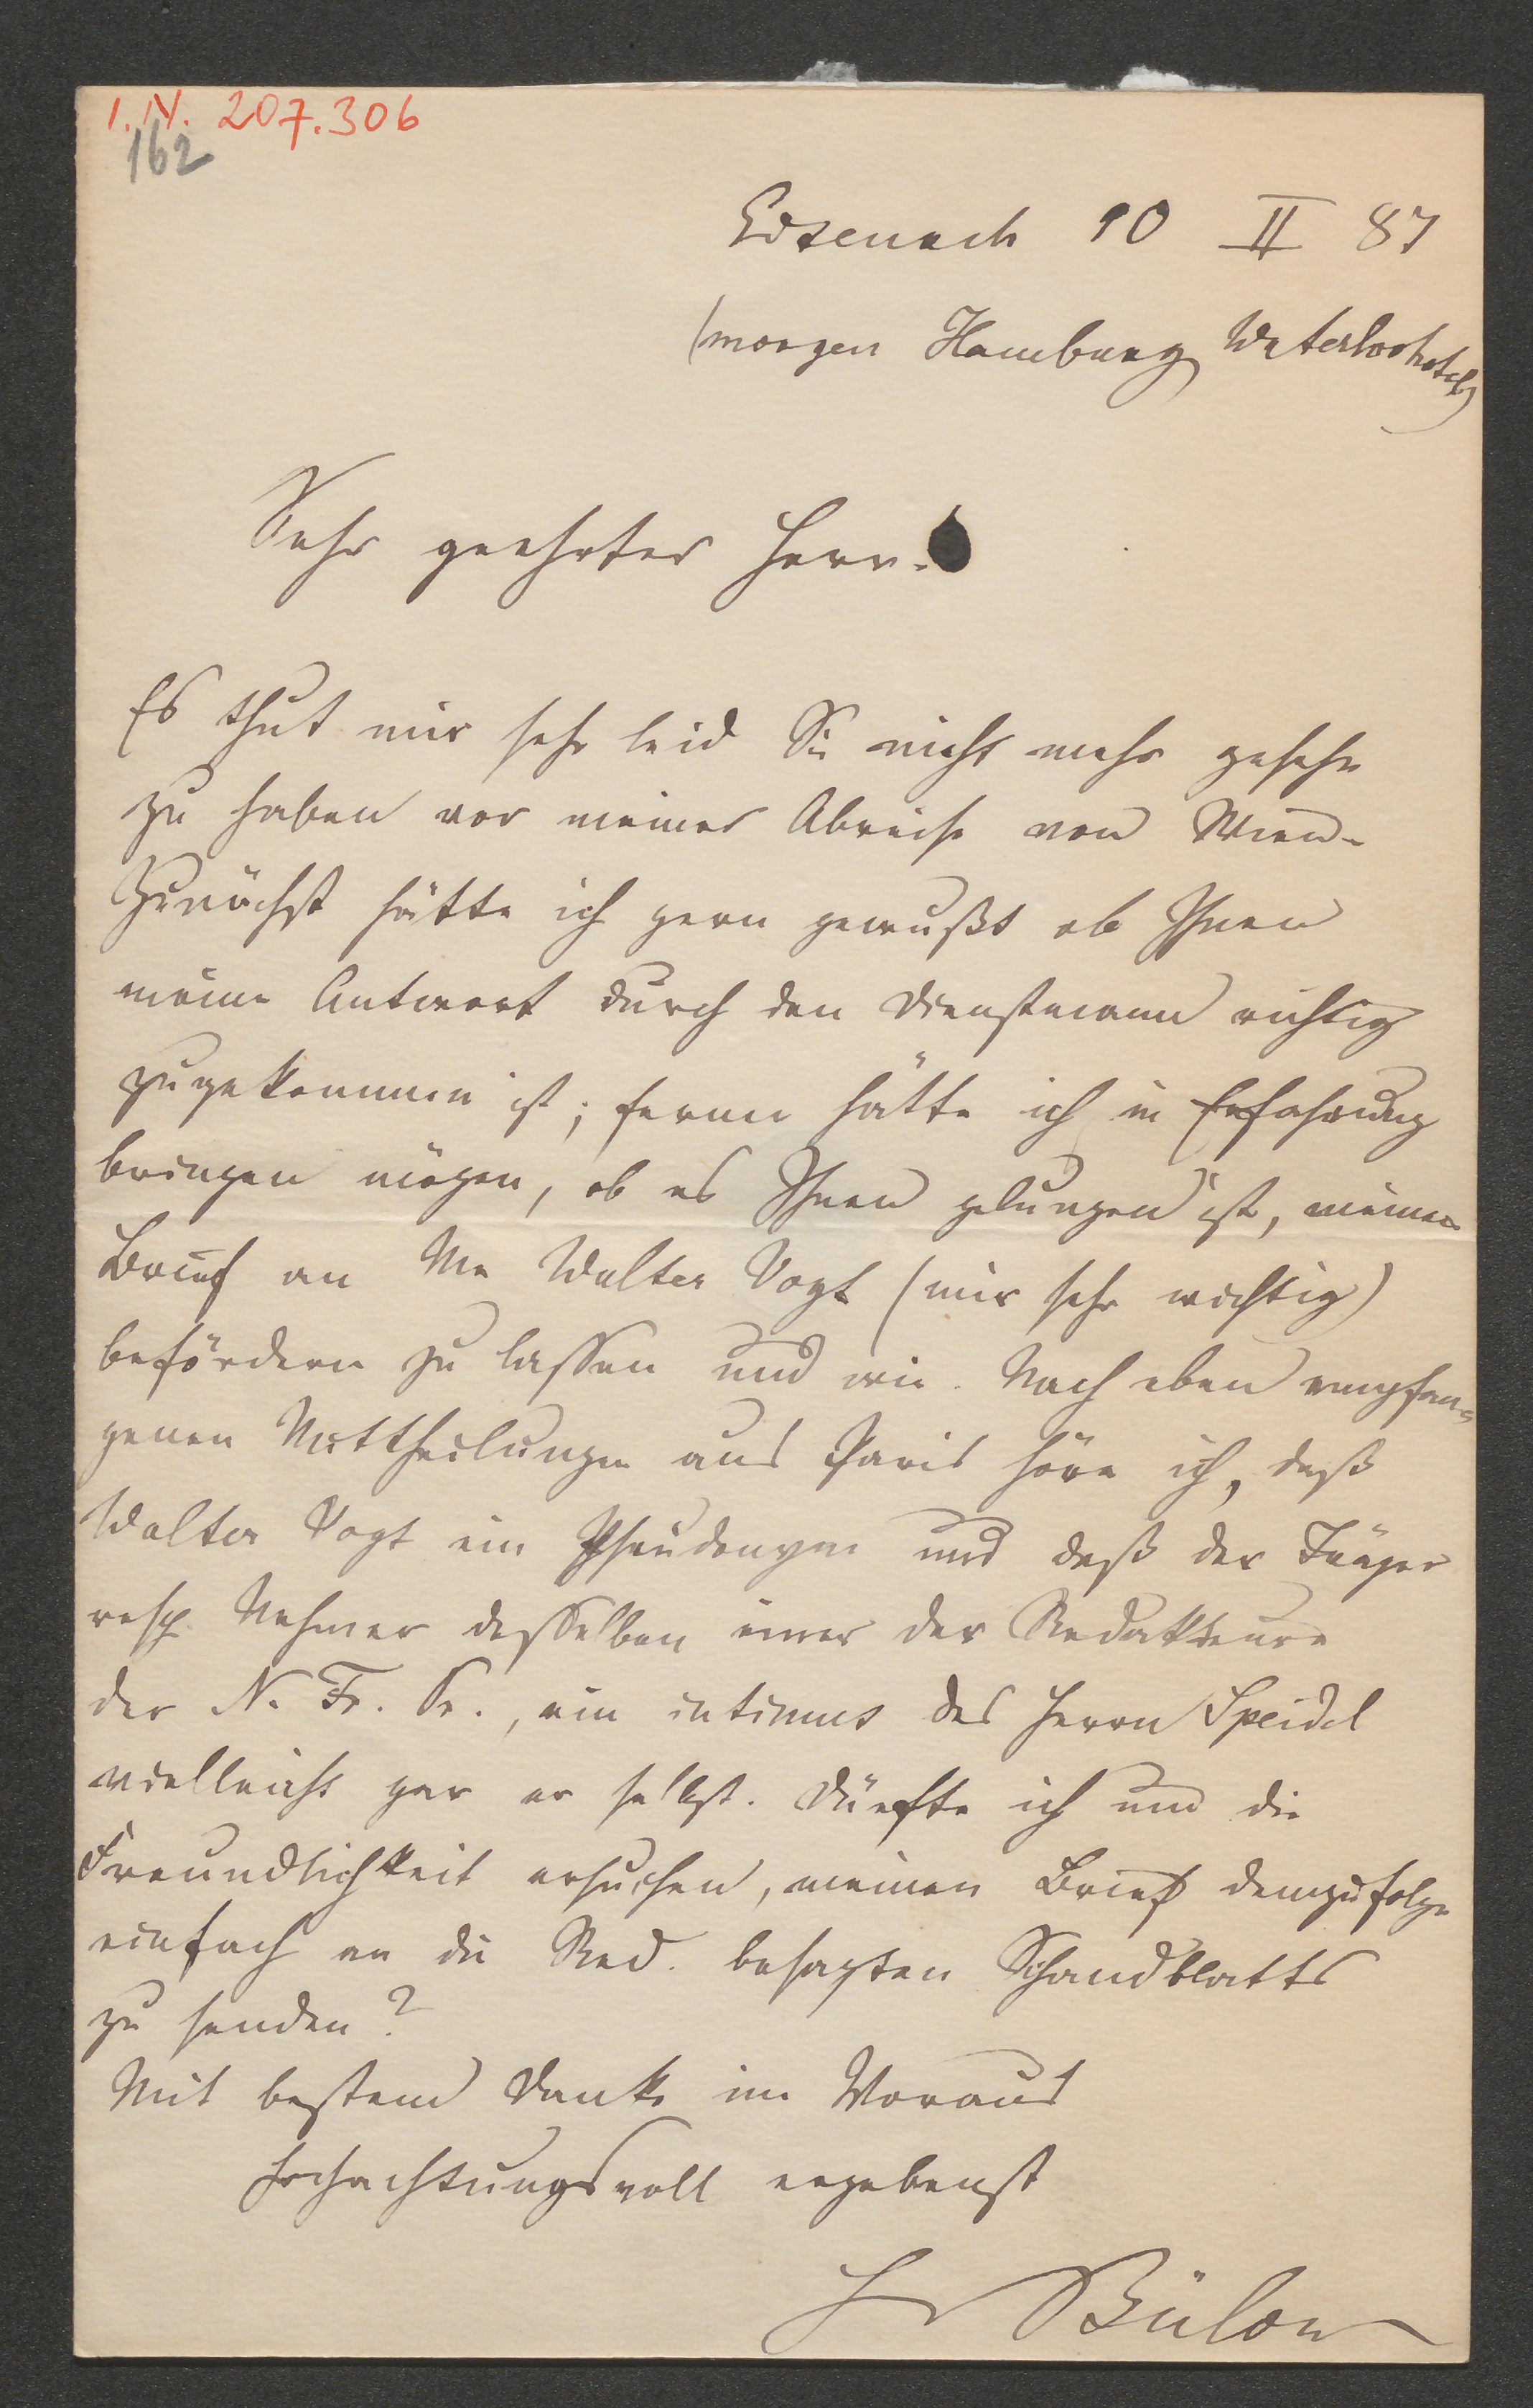 I.N. 207.306
162
Eisenach 10 II 87
(morgen Hamburg Waterloohotel)
Sehr geehrter Herr.
Es thut mir sehr leid Sie nicht mehr gesehn
zu haben vor meiner Abreise von Wien.
Zunächst hätte ich gern gewußt ob Ihnen
meine Antwort durch den Dienstmann richtig
zugekommen ist; ferner hätte ich in Erfahrung
bringen mögen, ob es Ihnen gelungen ist, meinen
Brief an Mr Walter Vogt (mir sehr wichtig)
befördern zu lassen und wie. Nach eben empfan-
genen Mittheilungen aus Paris höre ich, daß
Walter Vogt ein Pseudonym und daß der Träger
resp. Nehmer desselben einer der Redakteure
der N. Fr. Pr., ein intimus des Herrn Speidel
vielleicht gar er selbst. Dürfte ich um die
Freundlichkeit ersuchen, meinen Brief demzufolge
einfach an die Red. besagten Schandblatts
zu senden?
Mit bestem Danke im Voraus
hochachtungsvoll ergebenst
H v Bülow